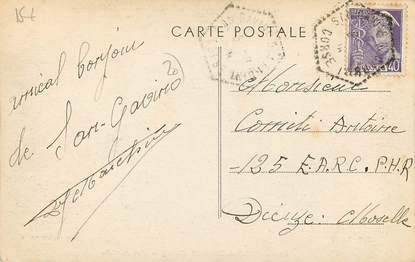 15 €
CARTE POSTALE
CORSE
40
20
amical bonjour
de San-Gavino
Monsieur
Comiti Antoine
-125 E.A.R.C. P.H.R
Dieuze. Moselle